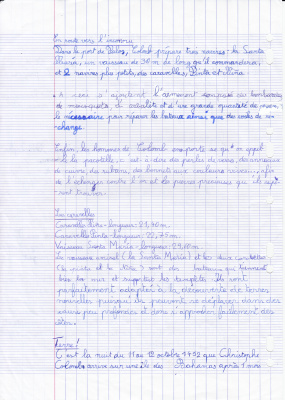 En route vers l'inconnu
Dans le port de Palos, Colomb prépare trois navires : la Santa
Maria, un vaisseau de 30 m de long qu'il commandera,
et 2 navires plus petits, des caravelles, Pinta et Nina
A ceci s'ajoutent l'armement composé de bombardes
de mousquets, et et d'une grande quantité de
le nécessaire pour réparer les bateaux ainsi que des voiles de re-
change.
Enfin les hommes de Colomb emportent ce qu'on appel
la pacotille, c'est-à-dire des perles de verre, des anneaux
de cuivre, des rubans, des bonnets aux couleurs vives, afin
de l'échanger contre l'or et les pierres précieuses qu'ils espè-
rent trouver.
Les caravelles
Caravelle Nina - longueur : 21,40 m.
Caravelle Pinta - longueur : 22,75 m.
Vaisseau Santa Maria - longueur : 29,10 m.
Le vaisseau amiral (la Santa Maria) et les deux caravelles
(la Pinta et la Nina) sont des bateaux qui tiennent
bien la mer et supportent les tempêtes. Ils sont
parfaitement adaptés à la découverte de terres
nouvelles puisqu'ils peuvent se déplacer dans des
eaux peu profondes et donc s'approcher facilement des
côtes.
Terre !
C'est la nuit du 11 au 12 octobre 1492 que Christophe
Colomb arrive sur une île des Bahamas après 1 mois